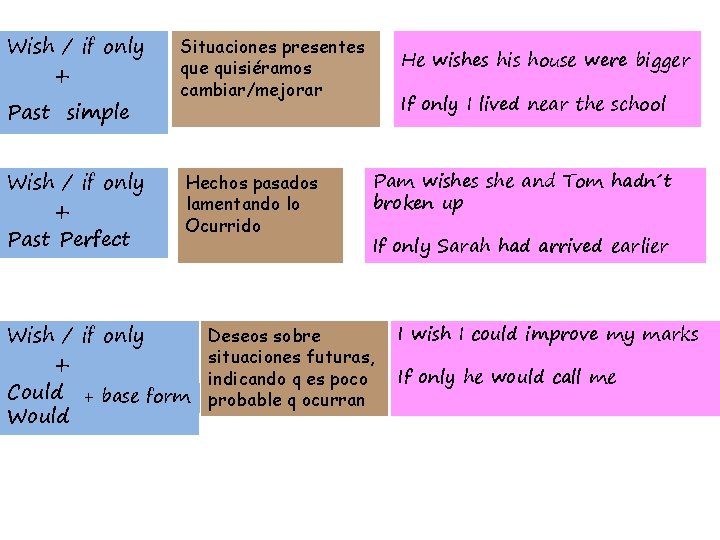 Wish / if only
+
Past simple
Situaciones presentes
que quisiéramos
cambiar/mejorar
He wishes his house were bigger
If only I lived near the school
Wish / if only
+
Past Perfect
Hechos pasados
lamentando lo
Ocurrido
Pam wishes she and Tom hadn´t
broken up
If only Sarah had arrived earlier
Wish / if only
+
Could + base form
Would
Deseos sobre
situaciones futuras,
indicando q es poco
probable q ocurran
I wish I could improve my marks
If only he would call me